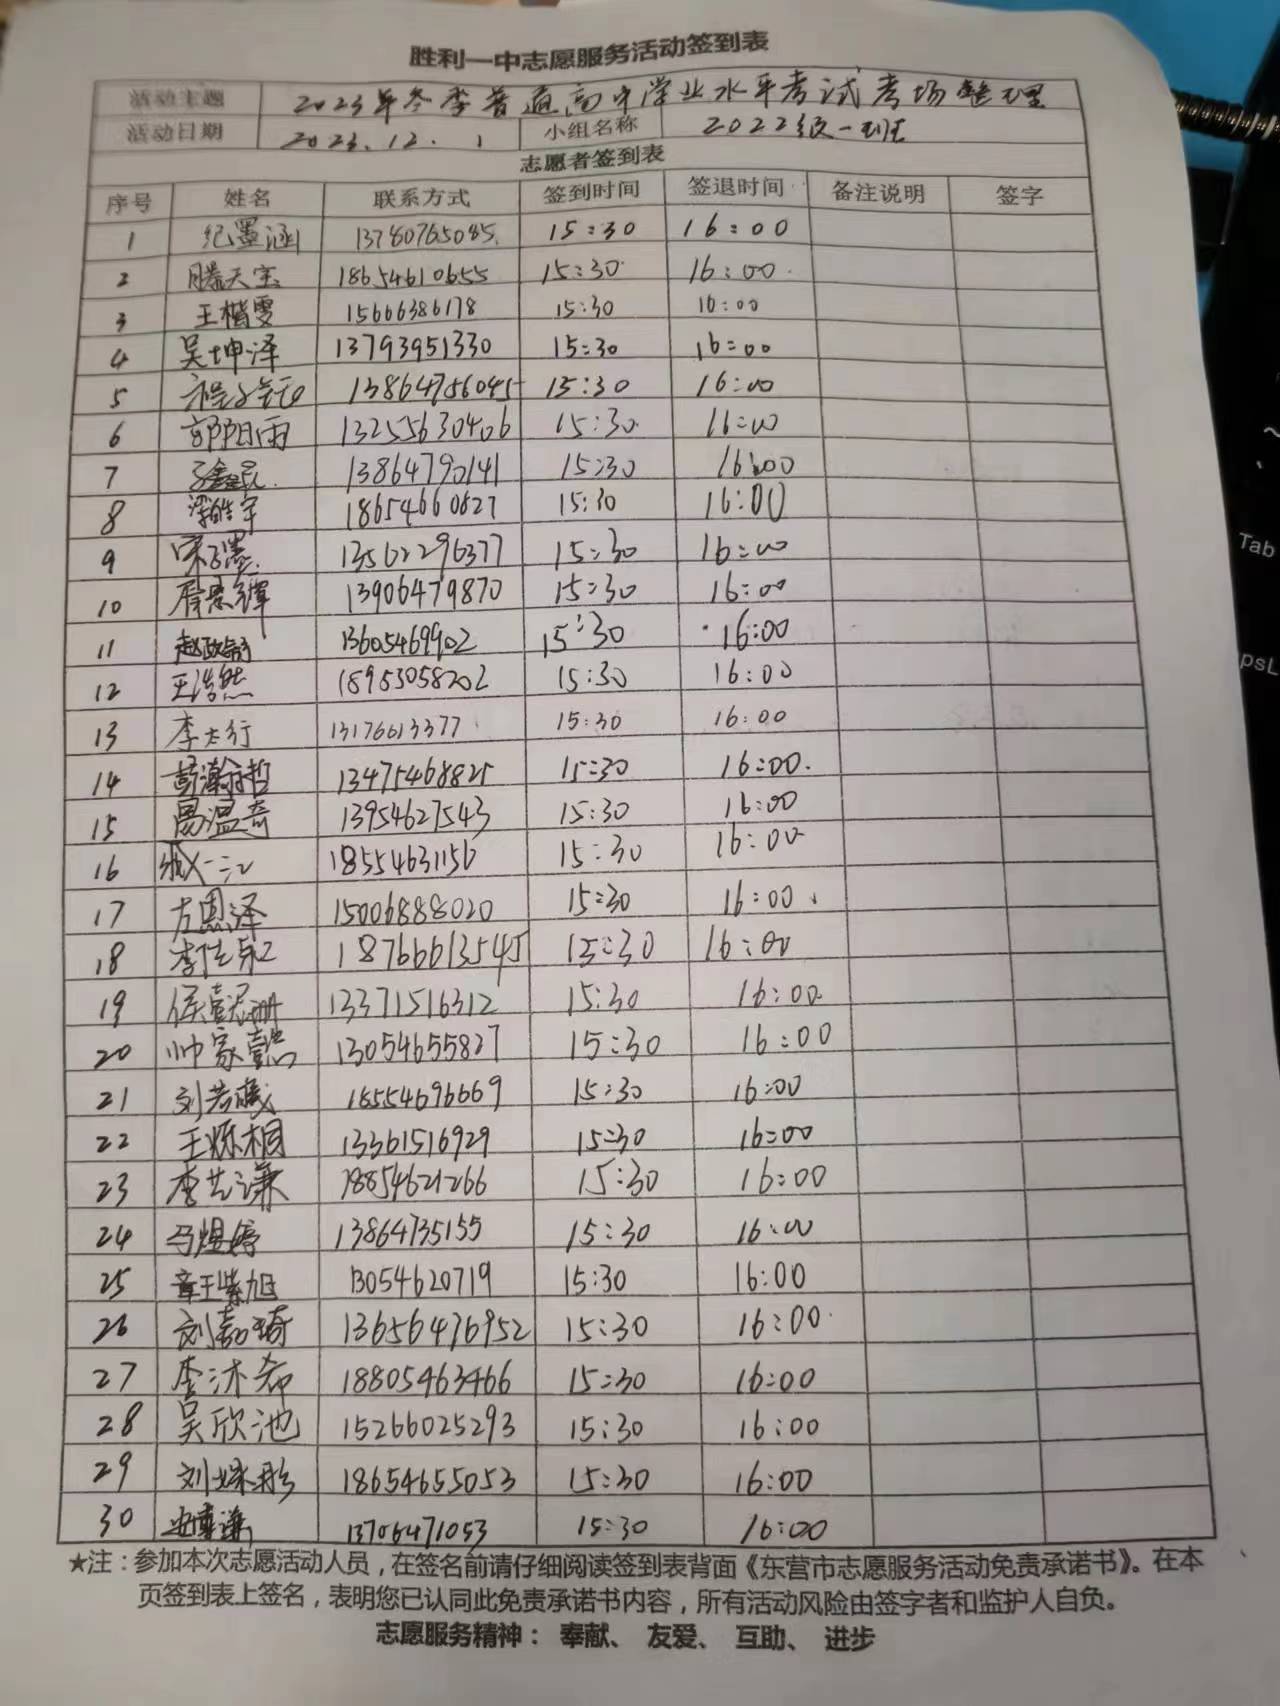 胜利一中志愿服务活动签到表
活动主题 2023年冬季普通高中学业水平考试考场整理
活动日期 2023.12.1 小组名称 2022级一班
志愿者签到表
序号 姓名 联系方式 签到时间 签退时间 备注说明 签字
1 纪墨涵 13780765085 15:30 16:00
2 滕天宝 18654610655 15:30 16:00
3 王楷雯 15666386178 15:30 16:00
4 吴坤泽 13793951330 15:30 16:00
5 13864756045 15:30 16:00
6 郭阳雨 13255630406 15:30 16:00
7 13864790141 15:30 16:00
8 18654660827 15:30 16:00
9 宋子墨 13562296377 15:30 16:00
10 13906479870 15:30 16:00
11 13605469902 15:30 16:00
12 王浩然 18953058202 15:30 16:00
13 李太行 13176613377 15:30 16:00
14 彭瀚哲 13475468825 15:30 16:00
15 13954627543 15:30 16:00
16 18554631156 15:30 16:00
17 左恩泽 15006888020 15:30 16:00
18 18766613545 15:30 16:00
19 13371516312 15:30 16:00
20 帅家懿 13054655827 15:30 16:00
21 18554696669 15:30 16:00
22 王烁桐 13361516929 15:30 16:00
23 李艺谦 18854621266 15:30 16:00
24 马煜婷 13864735155 15:30 16:00
25 章王紫旭 13054620719 15:30 16:00
26 刘嘉琦 13656476952 15:30 16:00
27 李沐希 18805463466 15:30 16:00
28 吴欣池 15266025293 15:30 16:00
29 刘姝彤 18654655053 15:30 16:00
30 13706471053 15:30 16:00
★注：参加本次志愿活动人员，在签名前请仔细阅读签到表背面《东营市志愿服务活动免责承诺书》。在本
页签到表上签名，表明您已认同此免责承诺书内容，所有活动风险由签字者和监护人自负。
志愿服务精神： 奉献、 友爱、 互助、 进步
Tab
psL